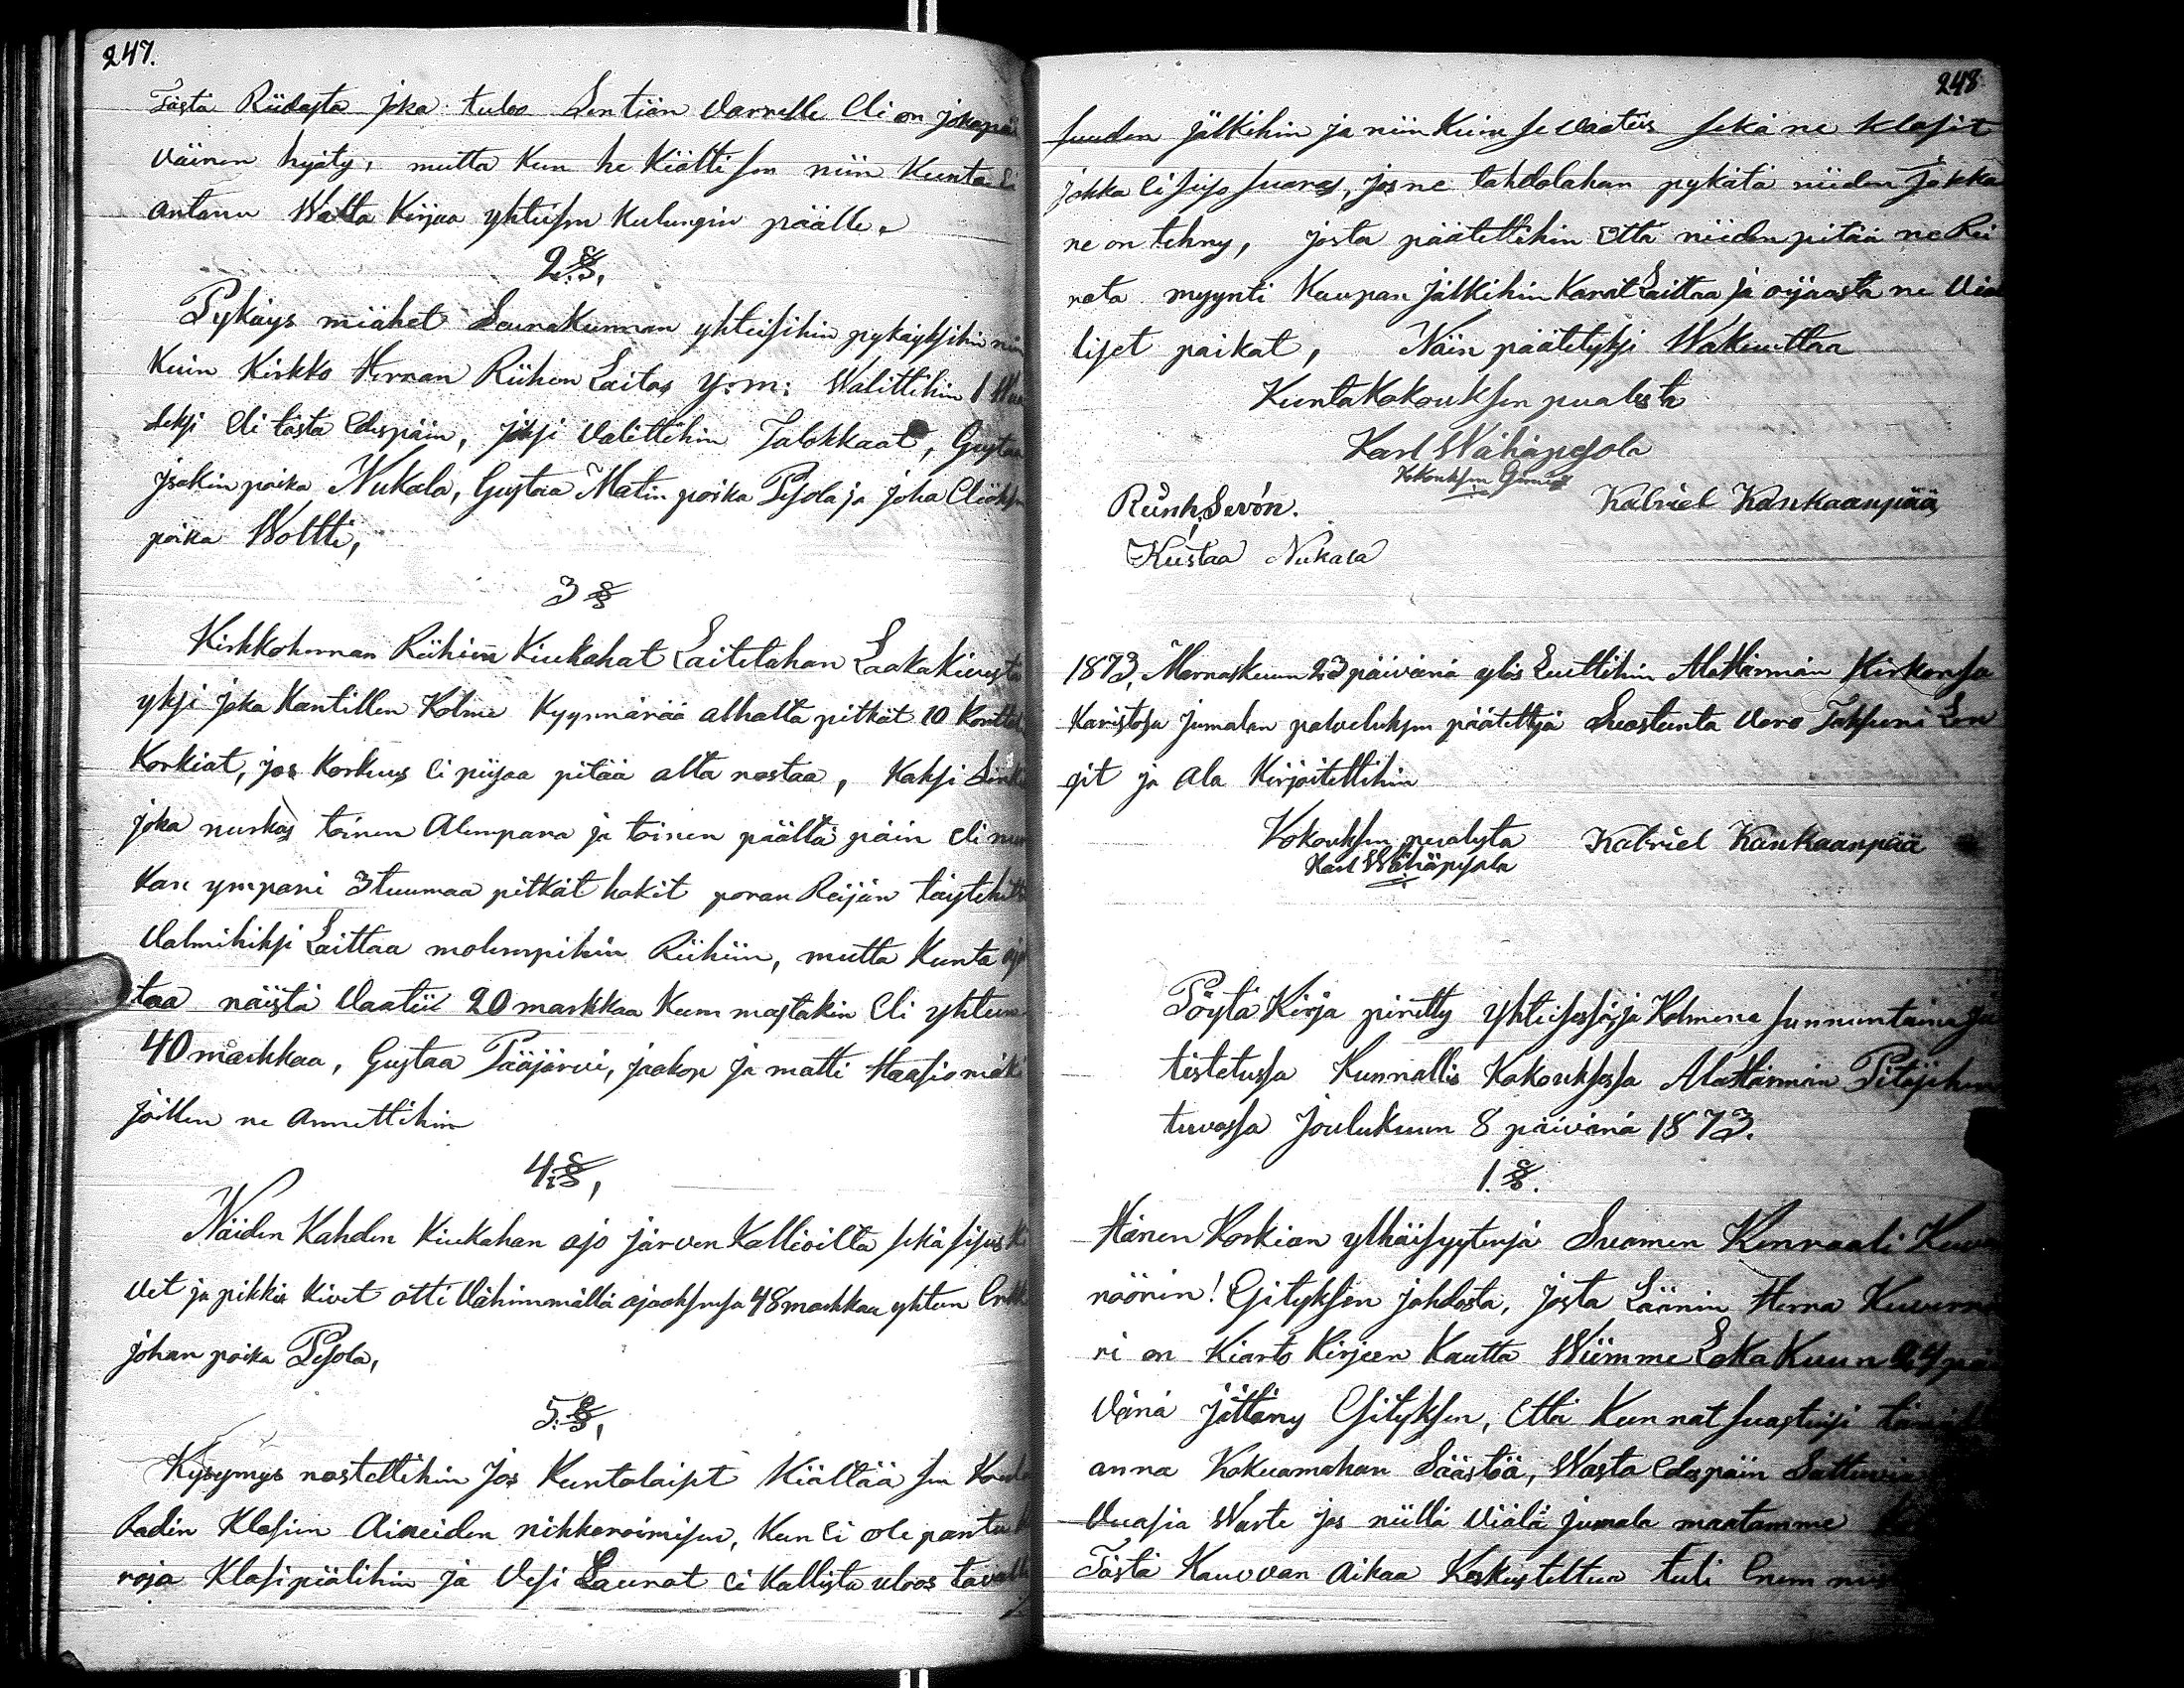 247.
Tästä Riidasta joka tulee Sentiön Varrelle Eli on jokapäi
väinen hyäty, mutta Kun he Kiälti sen niin Kunta Ei
antanu Walta Kirjaa yhteisen Kulungin päälle.
2.§.
Pykäys miähet Seurakunnan yhteisihin pykäyksihin nin
Kuin Kirkko Herran Riihen Laitos y:m: Walittihin 1
deksi Eli tästä Edespäin, joksi Valittihin Talokkaat, Gustaa
jsakin poika Nukala, Gustaa Matin poika Pesola ja joha
poika Woltti,
3 §
Kirkkoherran Riihiin Kiukahat Laitetahan Laakakivistä
yksi joka Kantillen Kolme Kyynärää alhalta pitkät 10 Korttelia
Korkiat, jos Korkuus Ei piisaa pitää alta nostaa, Kaksi
joka nurkas toinen Alempana ja toinen päältä päin Eli nur
kan ympäri 3 tuumaa pitkät hakit poran Reijän
Valmihiksi Laittaa molempihin Riihiin, mutta Kunta aja
taa näistä Vaatii 20 markkaa Kummastakin Eli yhteen
40 markkaa, Gustaa Pääjärvi, jaakop ja matti Haasiomäki
joillen ne Annettihin
4.§,
Näiden Kahden Kiukahan ajo järven Kallioilta sekä sisus Ki
vet ja pikkis kivet otti Vähimmällä ajaaksensa 48 markkaa yhteen
johan poika Pesola,
5.§,
Kysymys nostettihin Jos Kuntalaiset Kiältää sen
Radin Klasiin Aineiden nikkaroimisen, Kun Ei ole pantu
roja Klasipiälihin ja Vesi Launat Ei Kallista uloos
248
suuden jälkihin ja niin Kuin se Vaatiis sekä ne Klasit
jokka Ei sujo suoras, jos ne tahdotahan pykätä niiden jokka
ne on tehny, josta päätettihin Että niiden pitää ne
nata myynti Kaupan jälkihin Karat Laittaa ja oijaasta ne Via
liset paikat, Näin päätetyksi Wakuuttaa
Kunta Kokouksen puolesta
Karl Wähäpesola
Kokouksen
Kabriel Kankaanpää
Kustaa Nukala
1873, Marraskuun 23 päivänä ylös Luettihin Alahärmän Kirkonsa
Karistosa jumalan palveluksen päätettyä Suostunta Vero Taksuni Len
git ja Ala Kirjoitettihin
Kokouksen puolesta Kabriel Kankaanpää
Karl Wähäpesola
Pöytä Kirja piretty yhteisessä ja Kolmena sunnuntaina ju
tistetussa Kunnallis Kokouksessa Alahärmän Pitäjihen
tuvassa joulukuun 8 päivänä 1873.
1.§.
Hänen Korkian ylhäisyytensä Suomen Kenraali Kuver
nöörin! Esityksen johdosta, josta Läänin Herra Kuvernöö
ri on Kiarto Kirjeen Kautta Wiimme Loka Kuun 24 päi
vänä jättäny Esityksen, Että Kunnat suastuisi
anna Kokuamahan Säästöä, Wasta Edespäin Sattuvia
Vuasia Warte jos niillä Viälä jumala maatamme
Tästä Kauvvan Aikaa Keskusteltua tuli Enem